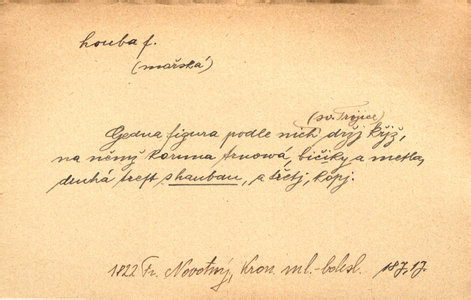 houba f.
(mořská)
(sv. Trojice)
Gedna figura podle nich držj křjž,
na němž koruna trnowá, bičiky a metla,
druhá treft s haubau, a třetj, kopj.
1822 Fr. Novotný, Kron. ml.-bolesl.